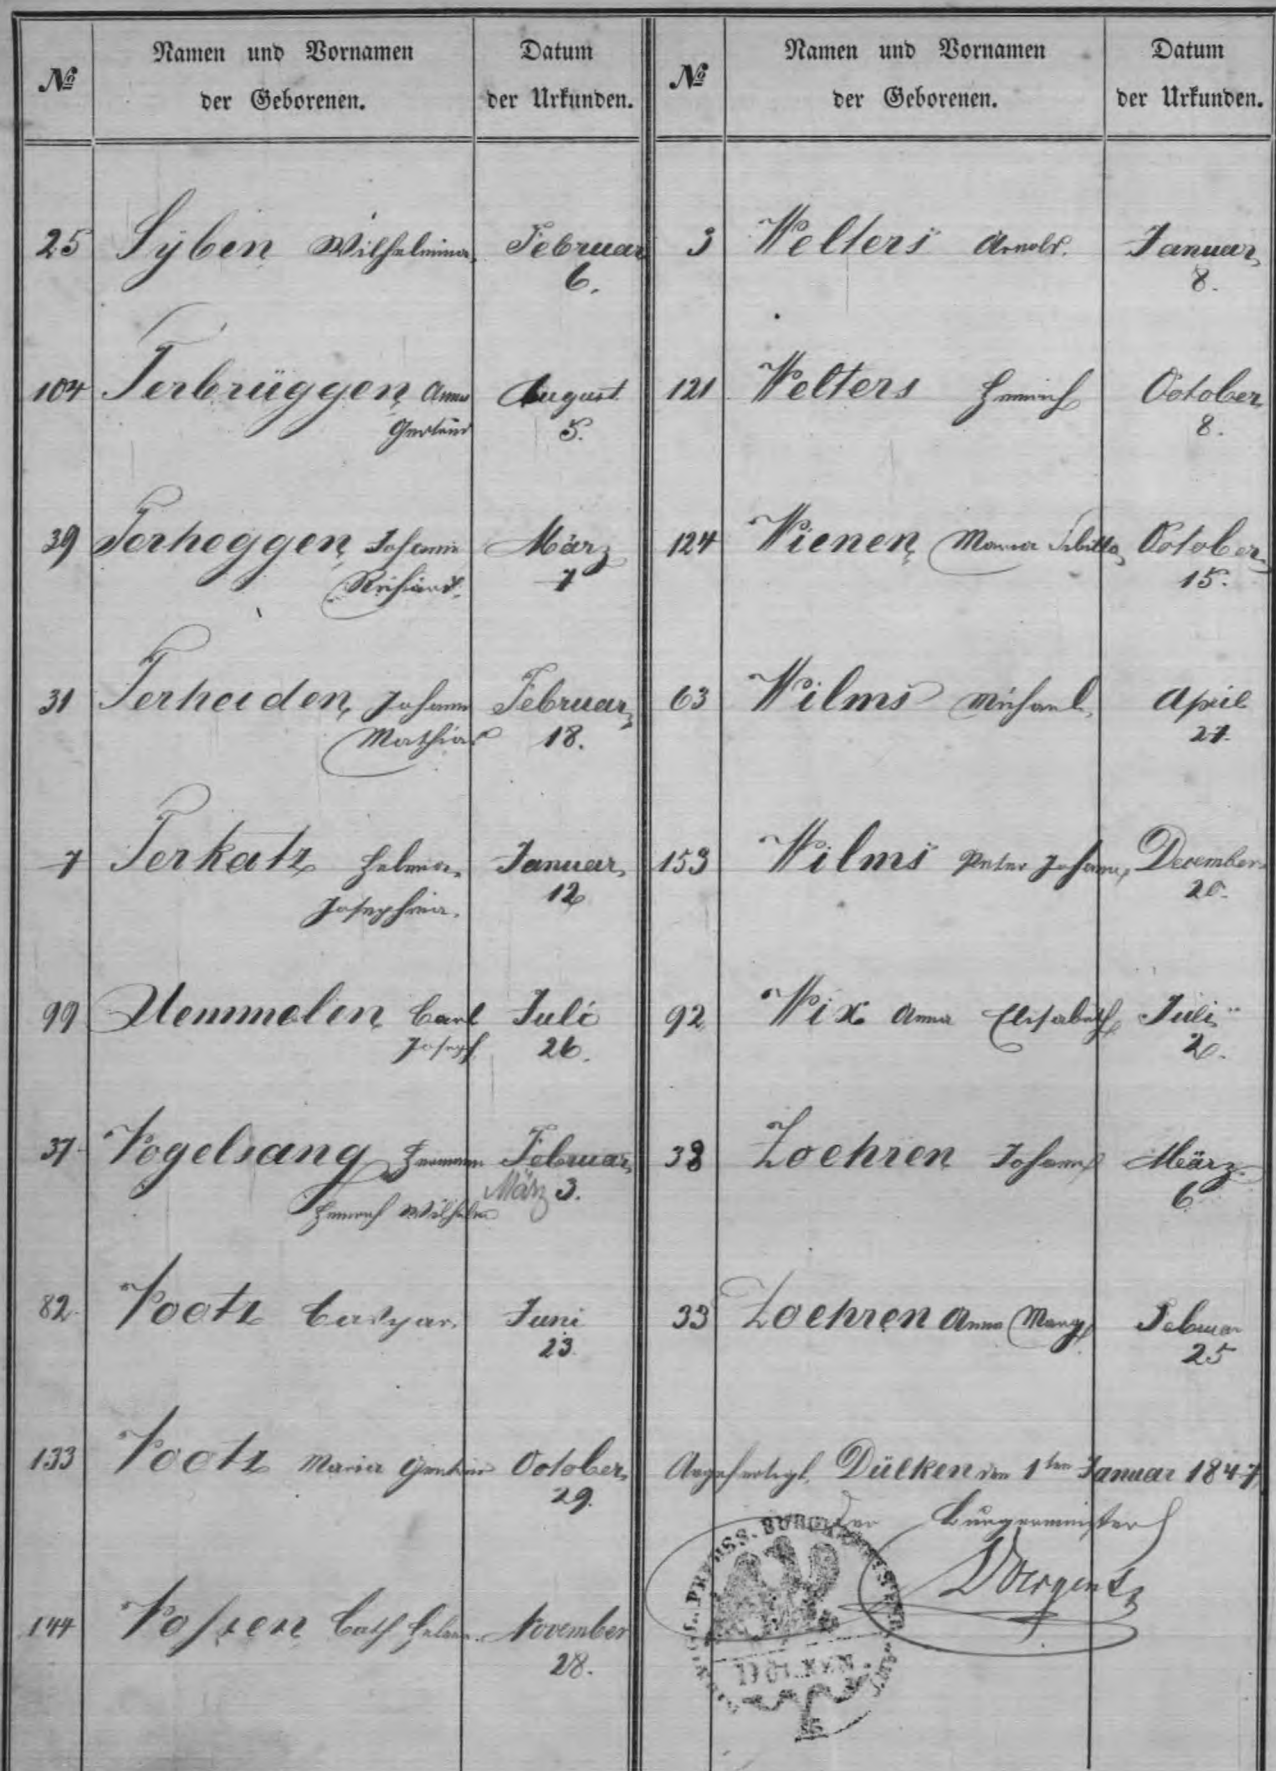 № Namen und Vornamen der Geborenen. Datum der Urkunden.
25 Syben Wilhelmina. Februar 6.
104 Terbrüggen Anna Gertrud August 5.
39 Terheggen Johann Richard. März 7
31 Terheiden Johann Mathias Februar 18.
7 Terkatz Helena Josephina. Januar 12
99 Uemmelen Carl Joseph Juli 26.
37 Vogelsang Hermann Heinrich Wilhelm Februar März 3.
82 Vootz Caspar. Juni 23.
133 Vootz Maria Gertrud October 29.
144 Vossen Cath Helena. November 28.
№ Namen und Vornamen der Geborenen. Datum der Urkunden.
3 Welters Arnold. Januar 8.
121 Welters Heinrich October 8.
124 Wienen Maria Sibilla October 15.
63 Wilms Michael. April
153 Wilms Peter Johann December 20.
92 Wix Anna Elisabeth Juli
38 Zoehren Johann März 6
33 Zoehren Anna Marg Februar 25
Angefertigt, Dülken den 1ten Januar 1847
der Burgermeister
DÜLKEN